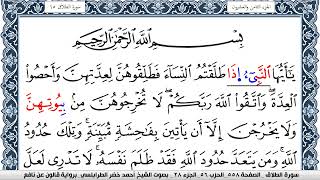 الجزء الثامن والعشرون
سورة الطلاق ٦٥
بِسْمِ اللَّهِ الرَّحْمَٰنِ الرَّحِيمِ
يَٰٓأَيُّهَا النَّبِيءُ اِ۬ذَا طَلَّقْتُمُ النِّسَآءَ فَطَلِّقُوهُنَّ لِعِدَّتِهِنَّ وَأَحْصُوا
الْعِدَّةَ وَاتَّقُوا اللَّهَ رَبَّكُمْ لَا تُخْرِجُوهُنَّ مِنْ بِيُوتِهِنَّ
وَلَا يَخْرُجْنَ إِلَّآ أَنْ يَأْتِينَ بِفَٰحِشَةٍ مُبَيِّنَةٍ وَتِلْكَ حُدُودُ
اللَّهِ وَمَنْ يَتَعَدَّ حُدُودَ اللَّهِ فَقَدْ ظَلَمَ نَفْسَهُ لَا تَدْرِي لَعَلَّ
سورة الطلاق - الصفحة ٥٥٨ - الحزب ٥٦ - الجزء ٢٨ - بصوت الشيخ أحمد خضر الطرابلسي - برواية قالون عن نافع